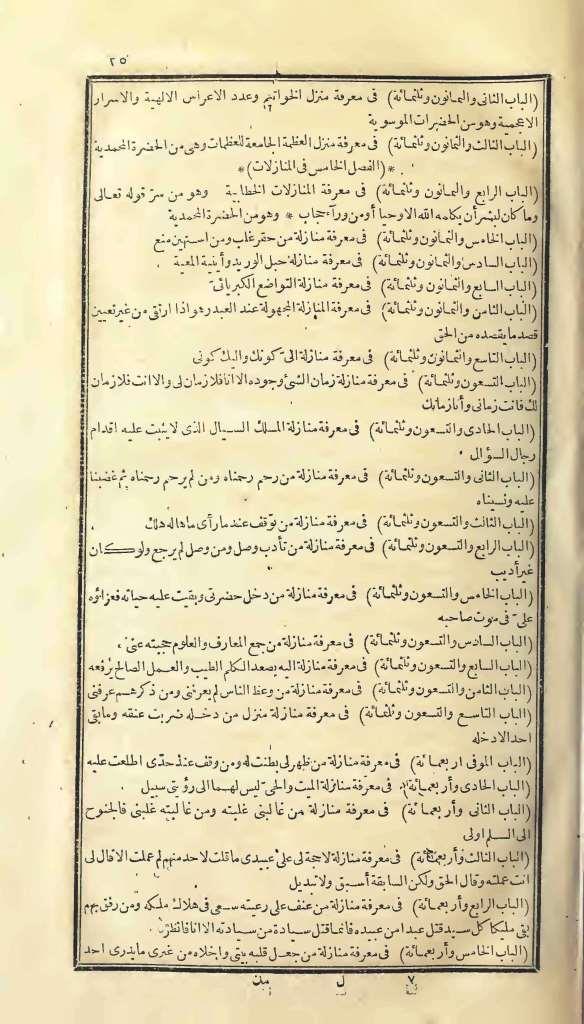 ٢٥
(الباب الثانى والثمانون وثلثمائة) فى معرفة منزل الخواتيم وعدد الاعراس الالهية والاسرار
الاعجمية وهو من الحضرات الموسوية
(الباب الثالث والثمانون وثلثمائة) فى معرفة منزل العظمة الجامعة للعظمات وهى من الحضرة المحمدية
*(الفصل الخامس فى المنازلات)*
(الباب الرابع والثمانون وثلثمائة) فى معرفة المنازلات الخطابية وهو من سر قوله تعالى
وما كان لبشر أن يكلمه الله الا وحيا أو من وراء حجاب * وهو من الحضرة المحمدية
(الباب الخامس والثمانون وثلثمائة) فى معرفة منازلة من حقر غلب ومن استهين منع
(الباب السادس والثمانون وثلثمائة) فى معرفة منازلة حبل الوريد وأينية المعية
(الباب السابع والثمانون وثلثمائة) فى معرفة منازلة التواضع الكبريائى
(الباب الثامن والثمانون وثلثمائة) فى معرفة المنازلة المجهولة عند العبد وهو اذا ارتقى من غير تعيين
قصد ما يقصده من الحق
(الباب التاسع والثمانون وثلثمائة) فى معرفة منازلة الى كونك واليك كونى
(الباب التسعون وثلثمائة) فى معرفة منازلة زمان الشئ وجوده الا انا فلا زمان لى والا انت فلا زمان
لك فانت زمانى وأنا زمانك
(الباب الحادى والتسعون وثلثمائة) فى معرفة منازلة المسلك السيال الذى لا يثبت عليه اقدام
رجال السؤال
(الباب الثانى والتسعون وثلثمائة) فى معرفة منازلة من رحم رحمناه ومن لم يرحم رحمناه ثم غضبنا
عليه ونسيناه
(الباب الثالث والتسعون وثلثمائة) فى معرفة منازلة من توقف عند ما رأى ما هاله هلك
(الباب الرابع والتسعون وثلثمائة) فى معرفة منازلة من تأدب وصل ومن وصل لم يرجع ولو كان
غير أديب
(الباب الخامس والتسعون وثلثمائة) فى معرفة منازلة من دخل حضرتى وبقيت عليه حياته فعزاؤه
على فى موت صاحبه
(الباب السادس والتسعون وثلثمائة) فى معرفة منازلة من جمع المعارف والعلوم حجبته عنى
(الباب السابع والتسعون وثلثمائة) فى معرفة منازلة اليه يصعد الكلم الطيب والعمل الصالح يرفعه
(الباب الثامن والتسعون وثلثمائة) فى معرفة منازلة من وعظ الناس لم يعرفنى ومن ذكرهم عرفنى
(الباب التاسع والتسعون وثلثمائة) فى معرفة منازلة منزل من دخله ضربت عنقه وما بقى
احد الا دخله
(الباب الموفى اربعمائة) فى معرفة منازلة من ظهر لى بطنت له ومن وقف عند حدى اطلعت عليه
(الباب الحادى وأربعمائة) فى معرفة منازلة الميت والحى ليس لهما الى رؤيتى سبيل
(الباب الثانى وأربعمائة) فى معرفة منازلة من غالبنى غلبته ومن غالبته غلبنى فالجنوح
الى السلم اولى
(الباب الثالث وأربعمائة) فى معرفة منازلة لا حجة لى على عبيدى ما قلت لاحد منهم لم عملت الا قال لى
انت عملته وقال الحق ولكن السابقة أسبق ولا تبديل
(الباب الرابع وأربعمائة) فى معرفة منازلة من عنف على رعيته سعى فى هلاك ملكه ومن رفق بهم
بقى مليكا كل سيد قتل عبدا من عبيده فانما قتل سيادة من سيادته الا انا فانظر
(الباب الخامس وأربعمائة) فى معرفة منازلة من جعل قلبه بيتى واخلاه من غيرى ما يدرى احد
٧ ل مك